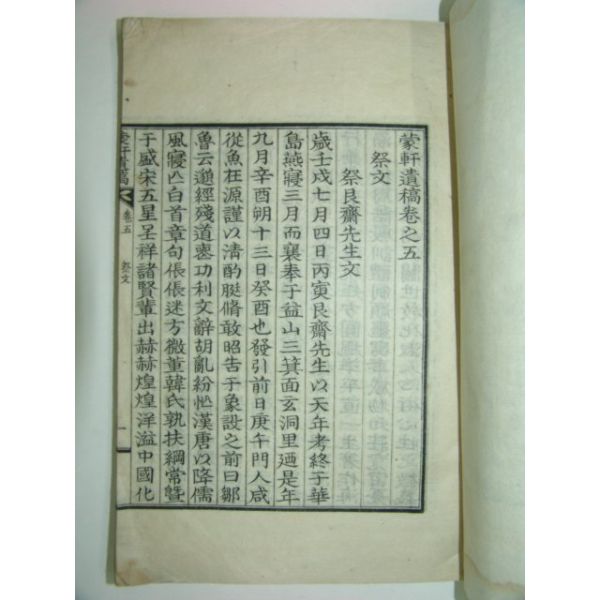 蒙軒遺稿卷之五
祭文
祭艮齋先生文
歲壬戌七月四日丙寅艮齋先生以天年考終于華
島燕寢三月而襄奉于益山三箕面玄洞里迺是年
九月辛酉朔十三日癸酉也發引前日庚午門人咸
從魚在源謹以淸酌脡脩敢昭告于象設之前曰鄒
魯云邈經殘道喪功利文辭胡亂紛怹漢唐以降儒
風寢亾白首章句倀倀迷方微董韓氏孰扶綱常曁
于盛宋五星呈祥諸賢輩出赫赫煌煌洋溢中國化
卷五 祭文 一